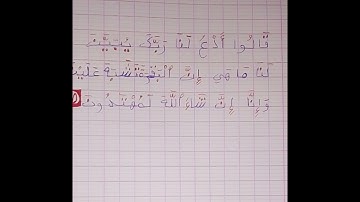 قَالُوا ٱدْعُ لَنَا رَبَّكَ يُبَيِّنْ
لَنَا مَا هِيَ إِنَّ ٱلْبَقَرَ تَشَٰبَهَ عَلَيْنَا
وَإِنَّا إِنْ شَاءَ ٱللَّهُ لَمُهْتَدُونَ